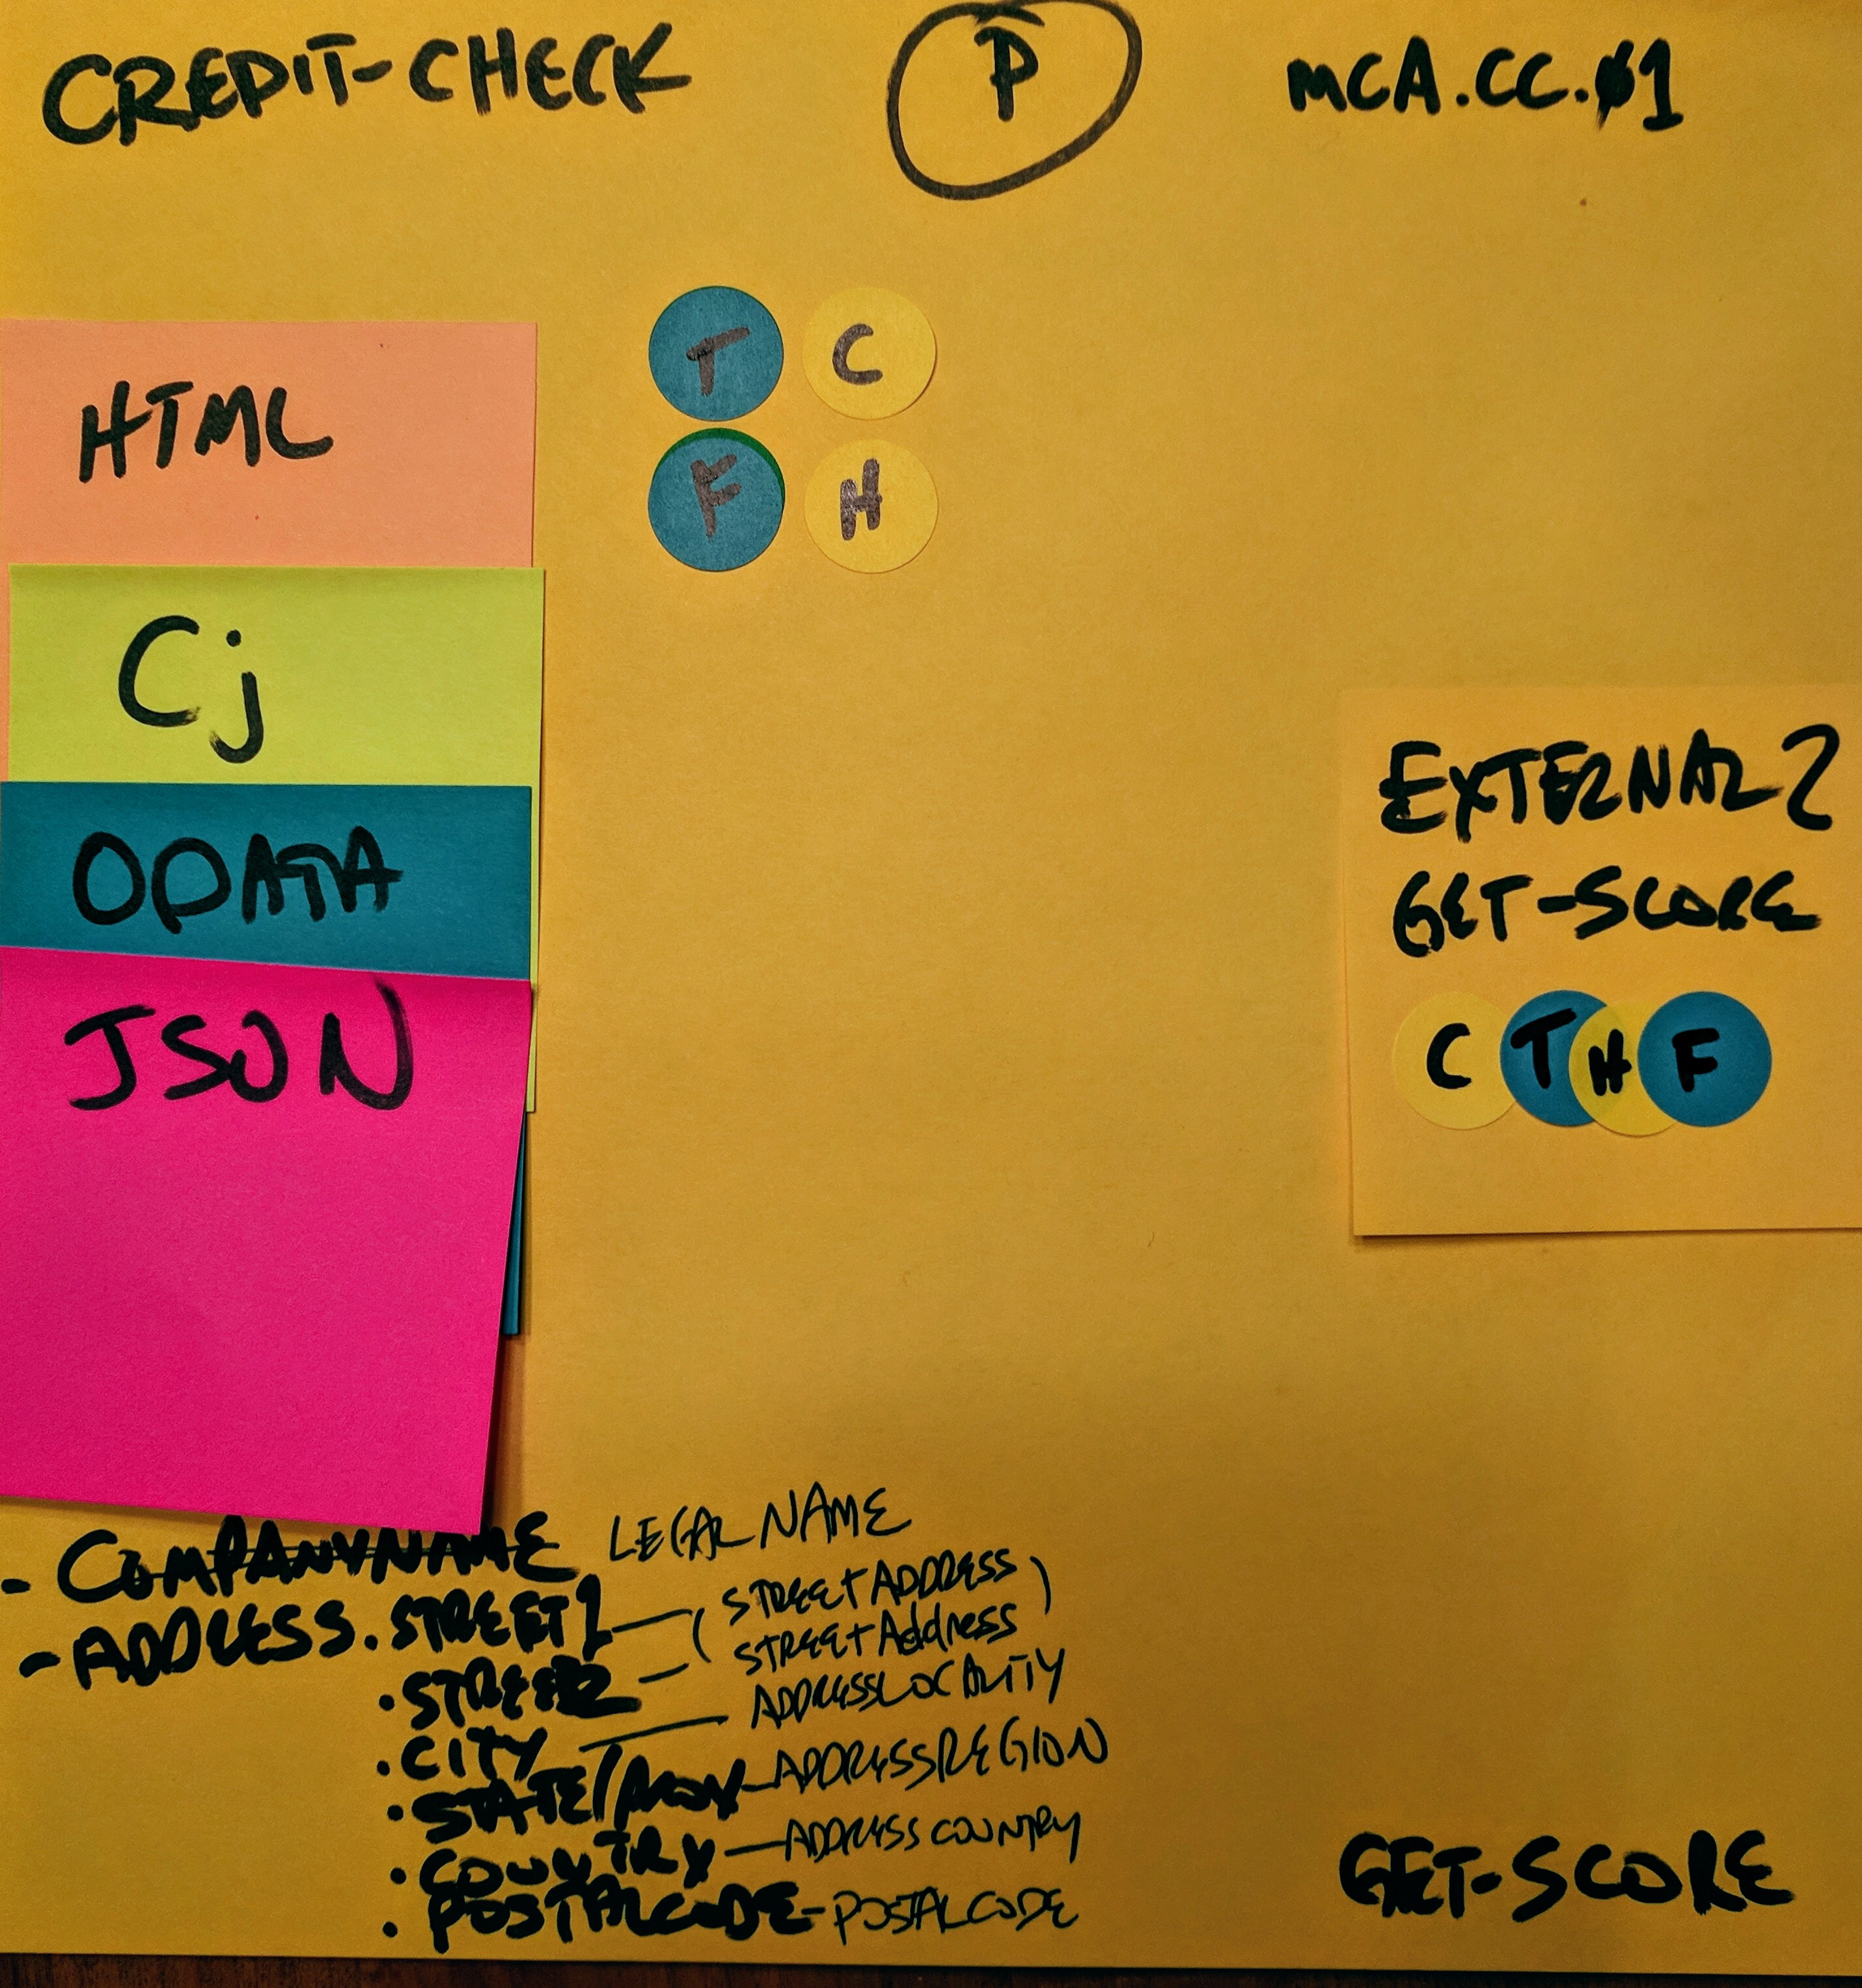 CREDIT-CHECK
P
MCA.CC.01
T C
F H
HTML
Cj
ODATA
JSON
EXTERNAL?
GET-SCORE
C T H F
- COMPANYNAME LEGALNAME
- ADDRESS.STREET1 — (STREETADDRESS)
.STREET2 — STREETAddress
.CITY — ADDRESSLOCALITY
.STATE/PROV — ADDRESSREGION
.COUNTRY — ADDRESSCOUNTRY
.POSTALCODE - POSTALCODE
GET-SCORE